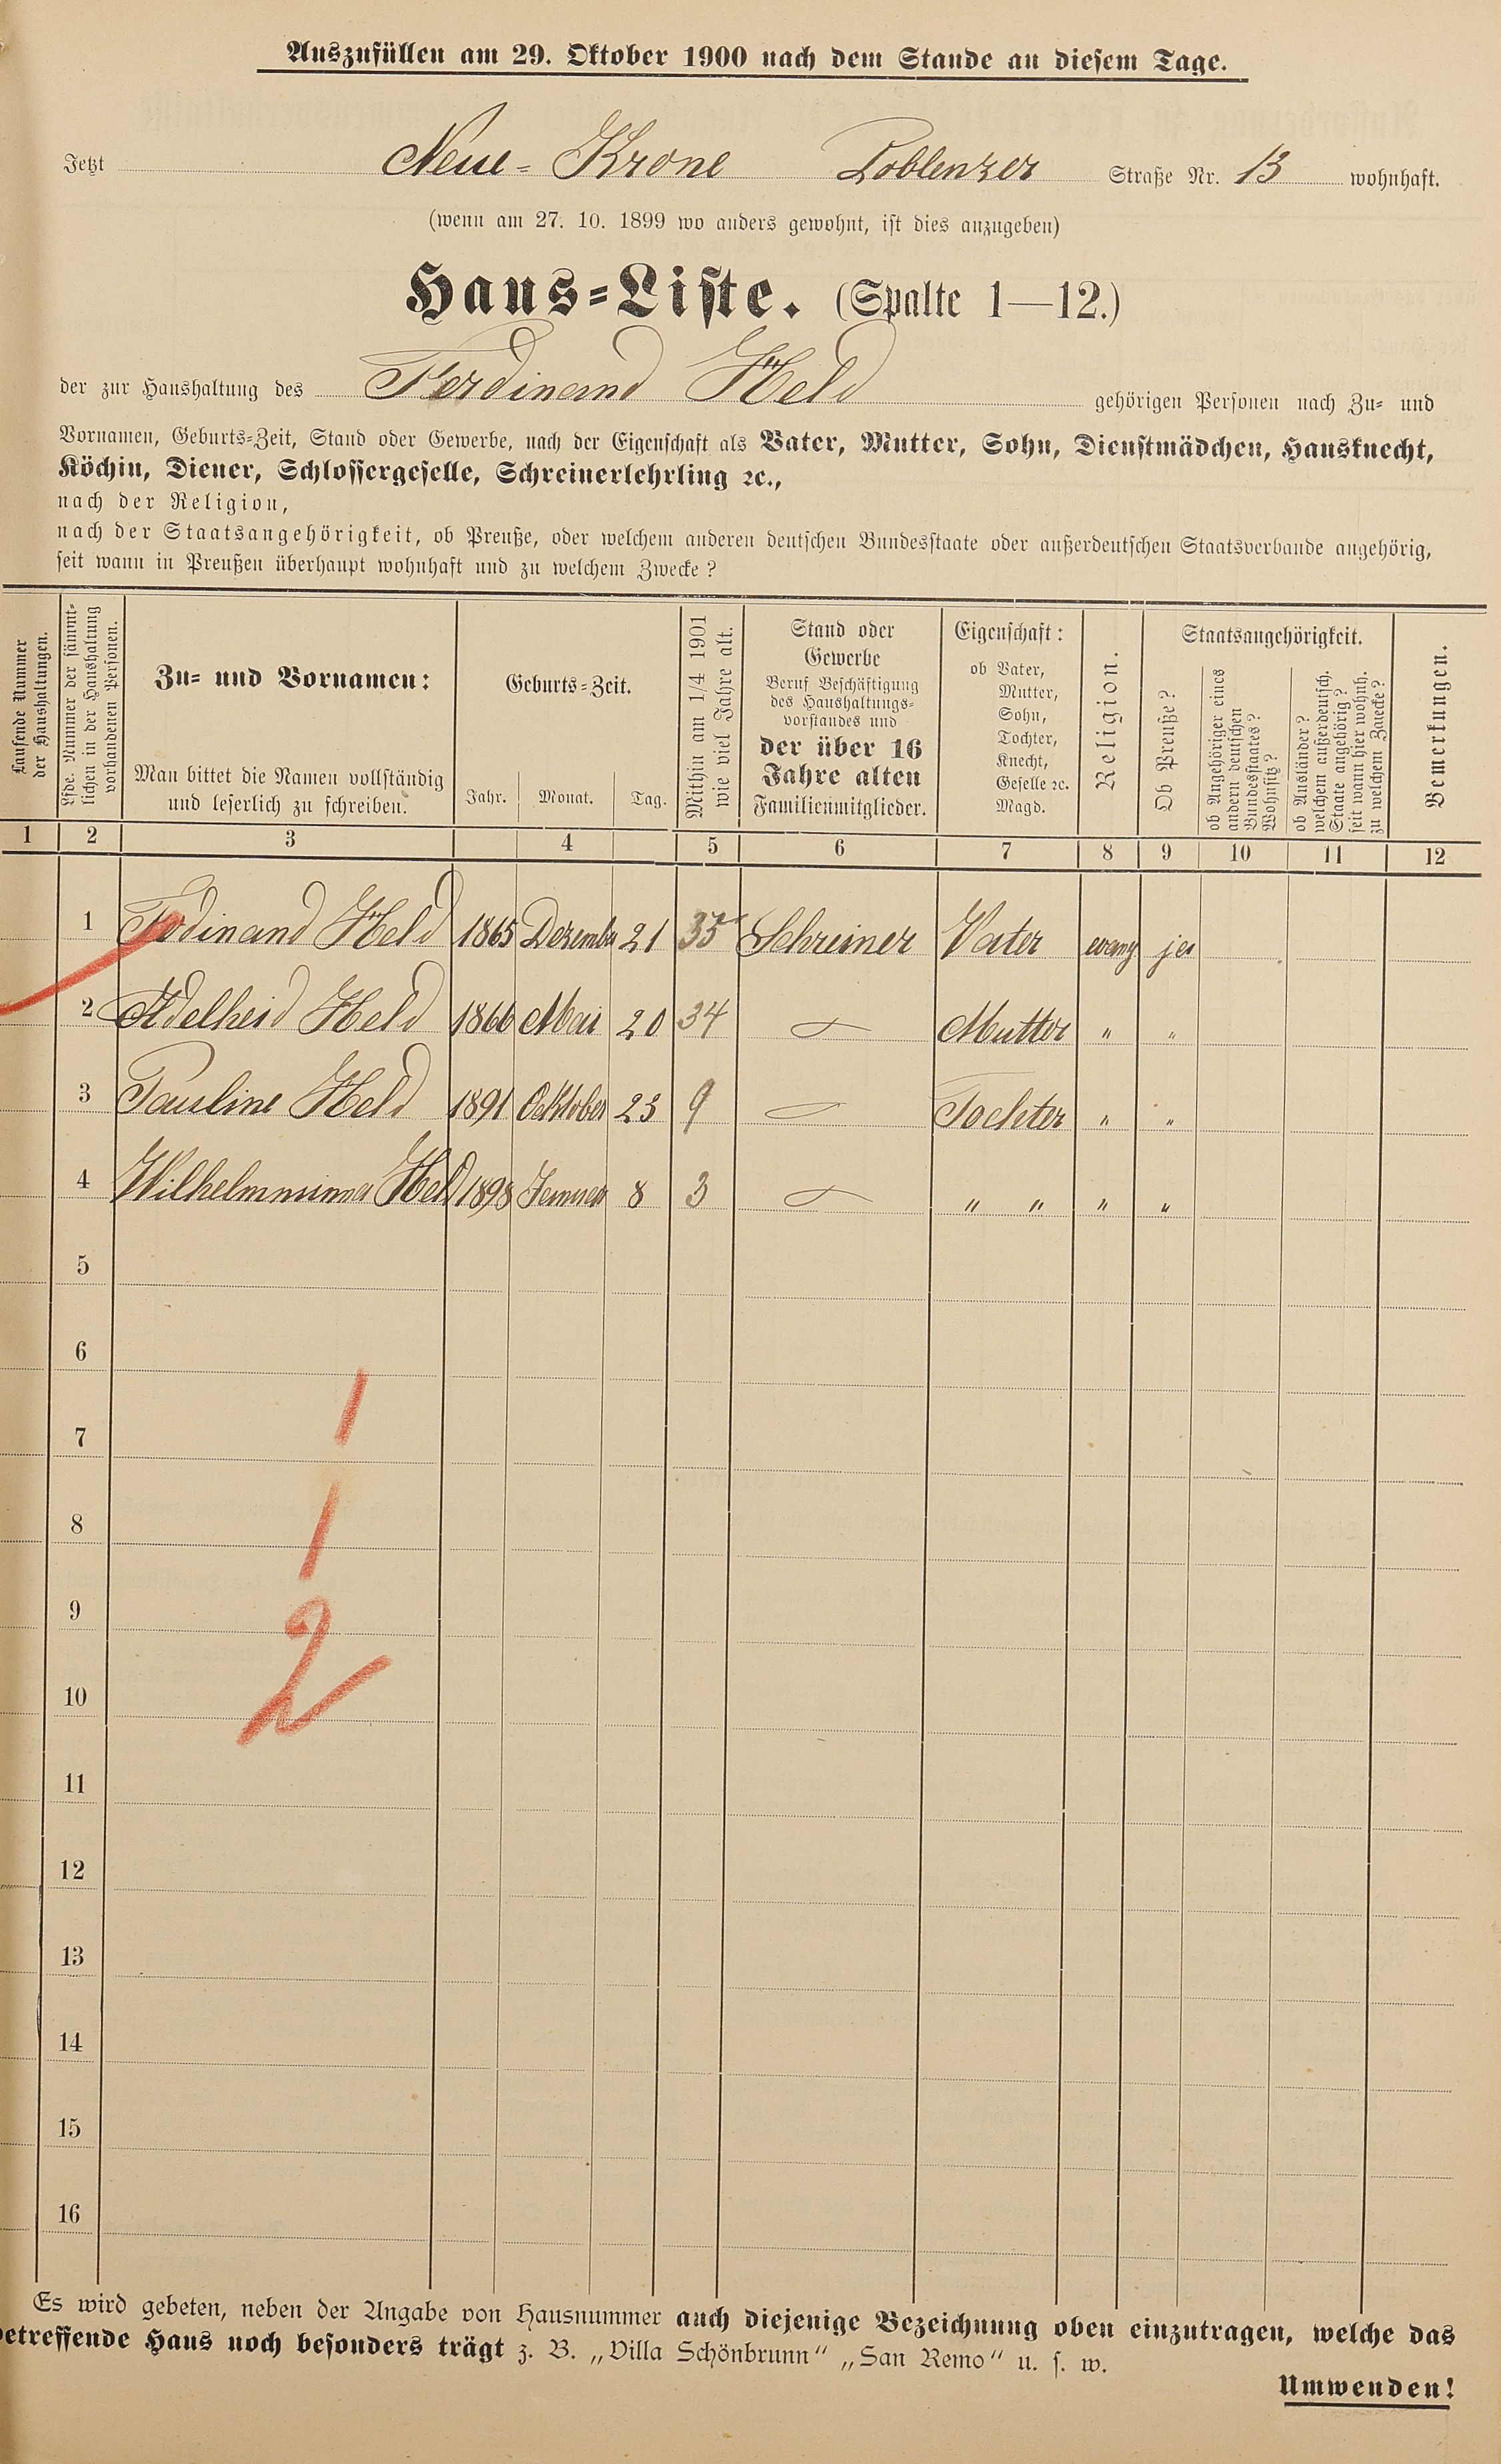 Auszufüllen am 29. Oktober 1900 nach dem Stande an diesem Tage.
Jetzt Neue-Krone Coblenzer Straße Nr. 13 wohnhaft.
(wenn am 27. 10. 1899 wo anders gewohnt, ist dies anzugeben)
Haus-Liste. (Spalte 1—12.)
der zur Haushaltung des Ferdinand Held gehörigen Personen nach Zu- und
Vornamen, Geburts-Zeit, Stand oder Gewerbe, nach der Eigenschaft als Vater, Mutter, Sohn, Dienstmädchen, Hausknecht,
Köchin, Diener, Schlossergeselle, Schreinerlehrling ꝛc.,
nach der Religion,
nach der Staatsangehörigkeit, ob Preuße, oder welchem anderen deutschen Bundesstaate oder außerdeutschen Staatsverbande angehörig,
seit wann in Preußen überhaupt wohnhaft und zu welchem Zwecke?
Laufende Nummer
der Haushaltungen.
Lfde. Nummer der sämmt-
lichen in der Haushaltung
vorhandenen Personen.
Zu- und Vornamen:
Man bittet die Namen vollständig
und leserlich zu schreiben.
Geburts-Zeit.
Jahr. Monat. Tag.
Mithin am 1/4 1901
wie viel Jahre alt.
Stand oder
Gewerbe
Beruf Beschäftigung
des Haushaltungs-
vorstandes und
der über 16
Jahre alten
Familienmitglieder.
Eigenschaft:
ob Vater,
Mutter,
Sohn,
Tochter,
Knecht,
Geselle ꝛc.
Magd.
Religion.
Staatsangehörigkeit.
Ob Preuße?
ob Angehöriger eines
andern deutschen
Bundesstaates?
Wohnsitz?
ob Ausländer?
welchem außerdeutsch.
Staate angehörig?
seit wann hier wohnh.
zu welchem Zwecke?
Bemerkungen.
1 2 3 4 5 6 7 8 9 10 11 12
1 Ferdinand Held 1865 Dezember 21 35 Schreiner Vater evang ja
2 Adelheid Held 1866 Mai 20 34 Mutter " "
3 Pauline Held 1891 Oktober 23 9 Tochter " "
4 Wilhelmmina Held 1898 Januar 8 3 " " " "
5
6
1
7
1
8
9
2
10
11
12
13
14
15
16
Es wird gebeten, neben der Angabe von Hausnummer auch diejenige Bezeichnung oben einzutragen, welche das
betreffende Haus noch besonders trägt z. B. „Villa Schönbrunn" „San Remo" u. s. w.
Umwenden!